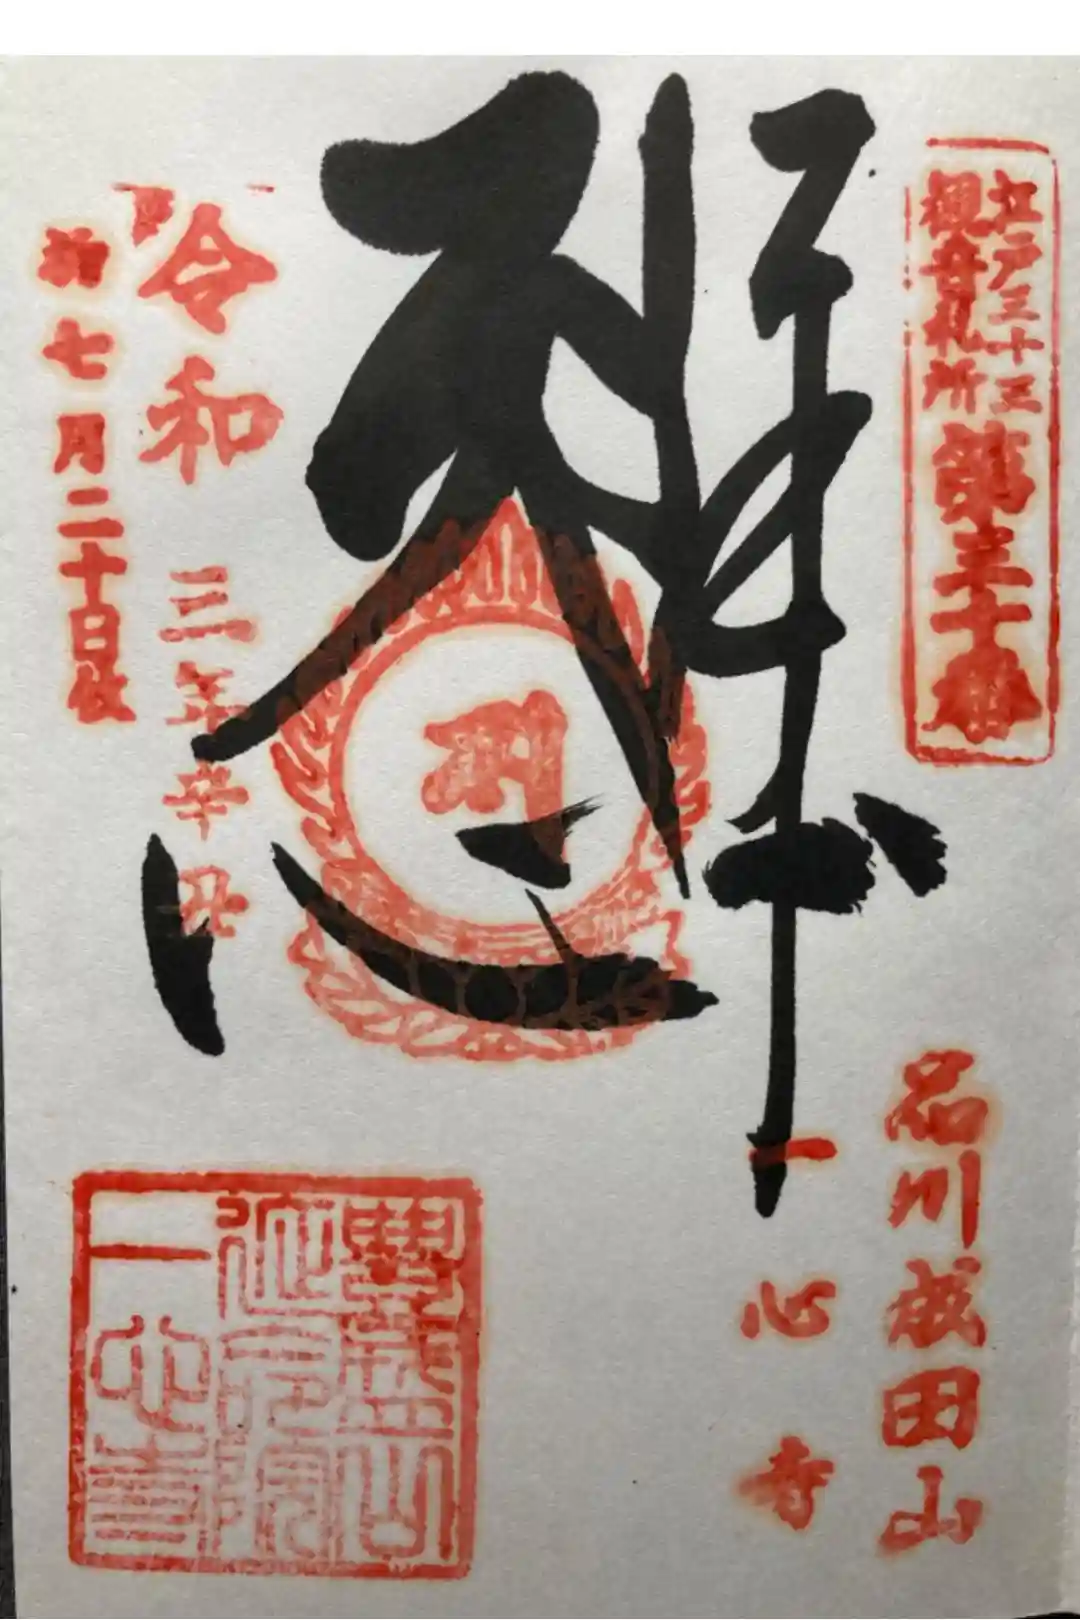 江戸三十三
観音札所
第三十番
品川成田山
一心寺
令和三年辛丑
七月二十日
豐盛山
延命院
一心寺